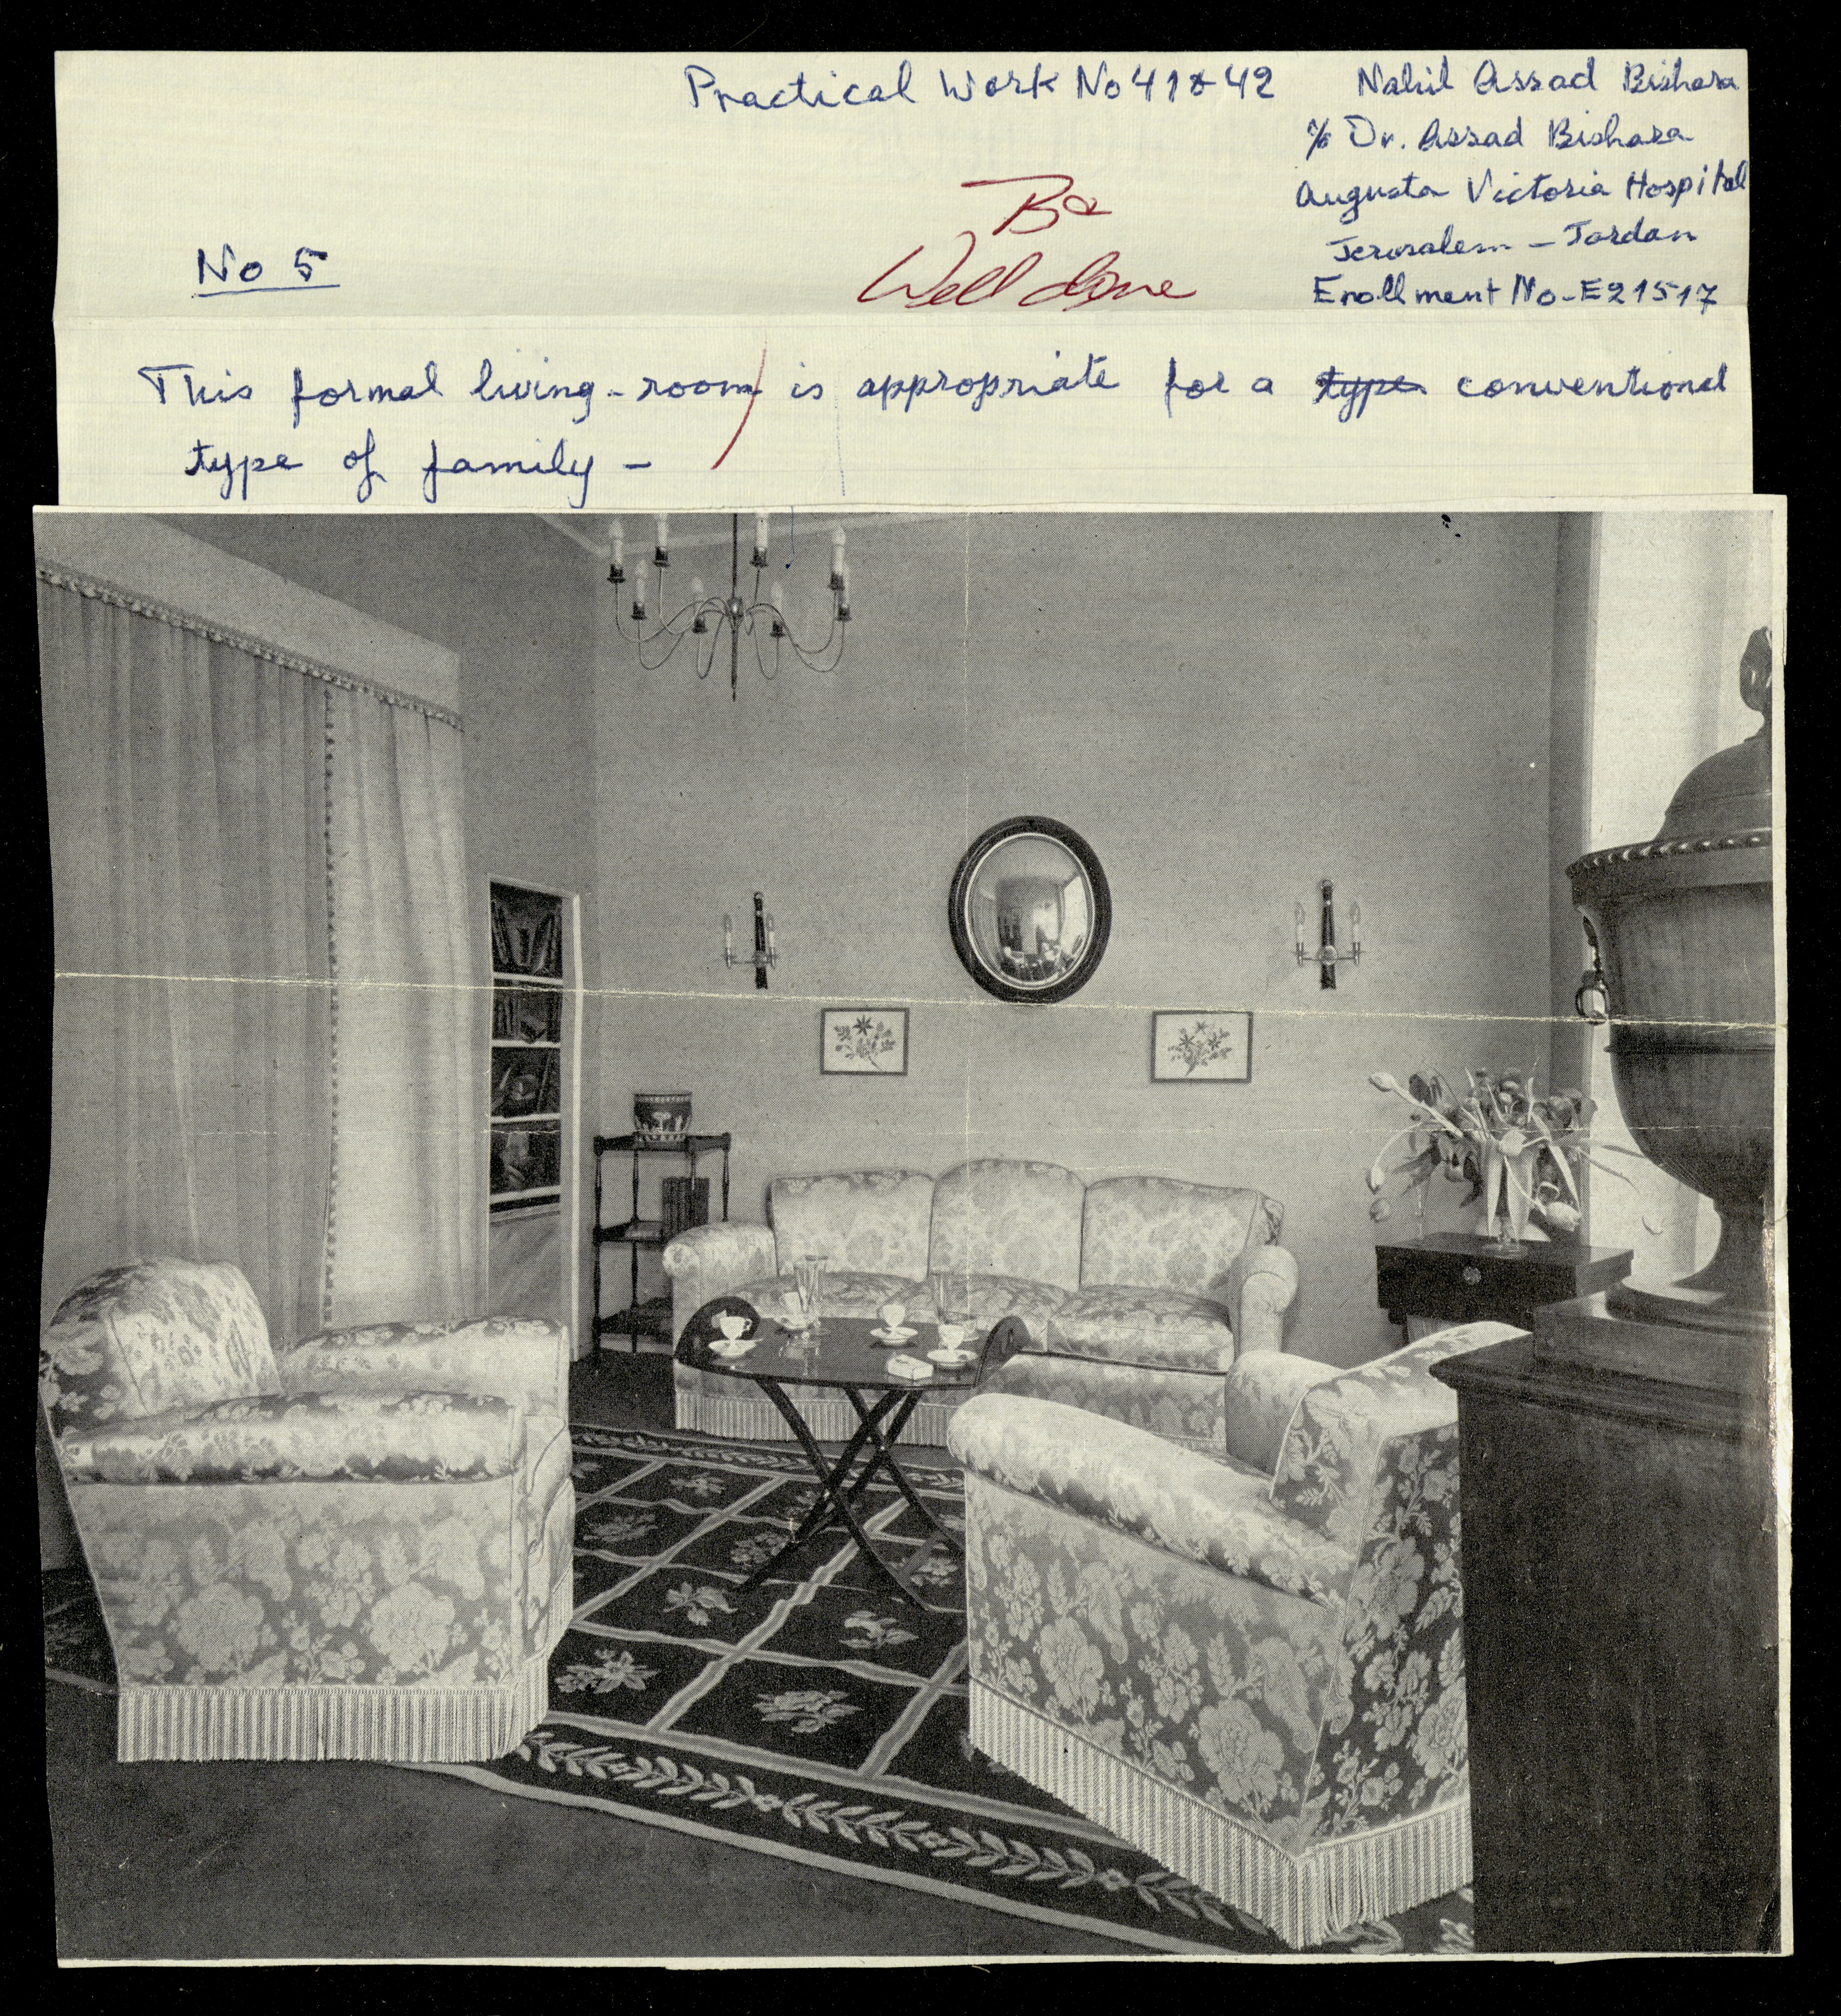 Practical Work No 41 & 42
Nahil Assad Bishara
c/o Dr. Assad Bishara
Augusta Victoria Hospital
Jerusalem - Jordan
Enollment No-E21517
Well done
No 5
This formal living-room is appropriate for a type conventional
type of family -